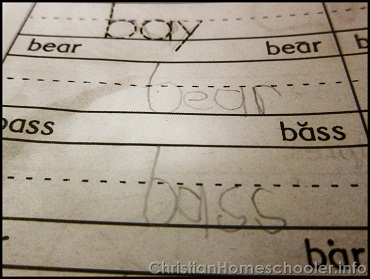 bay
bear beār b
bear
bass băss
bass
bȧr
ChristianHomeschooler.info